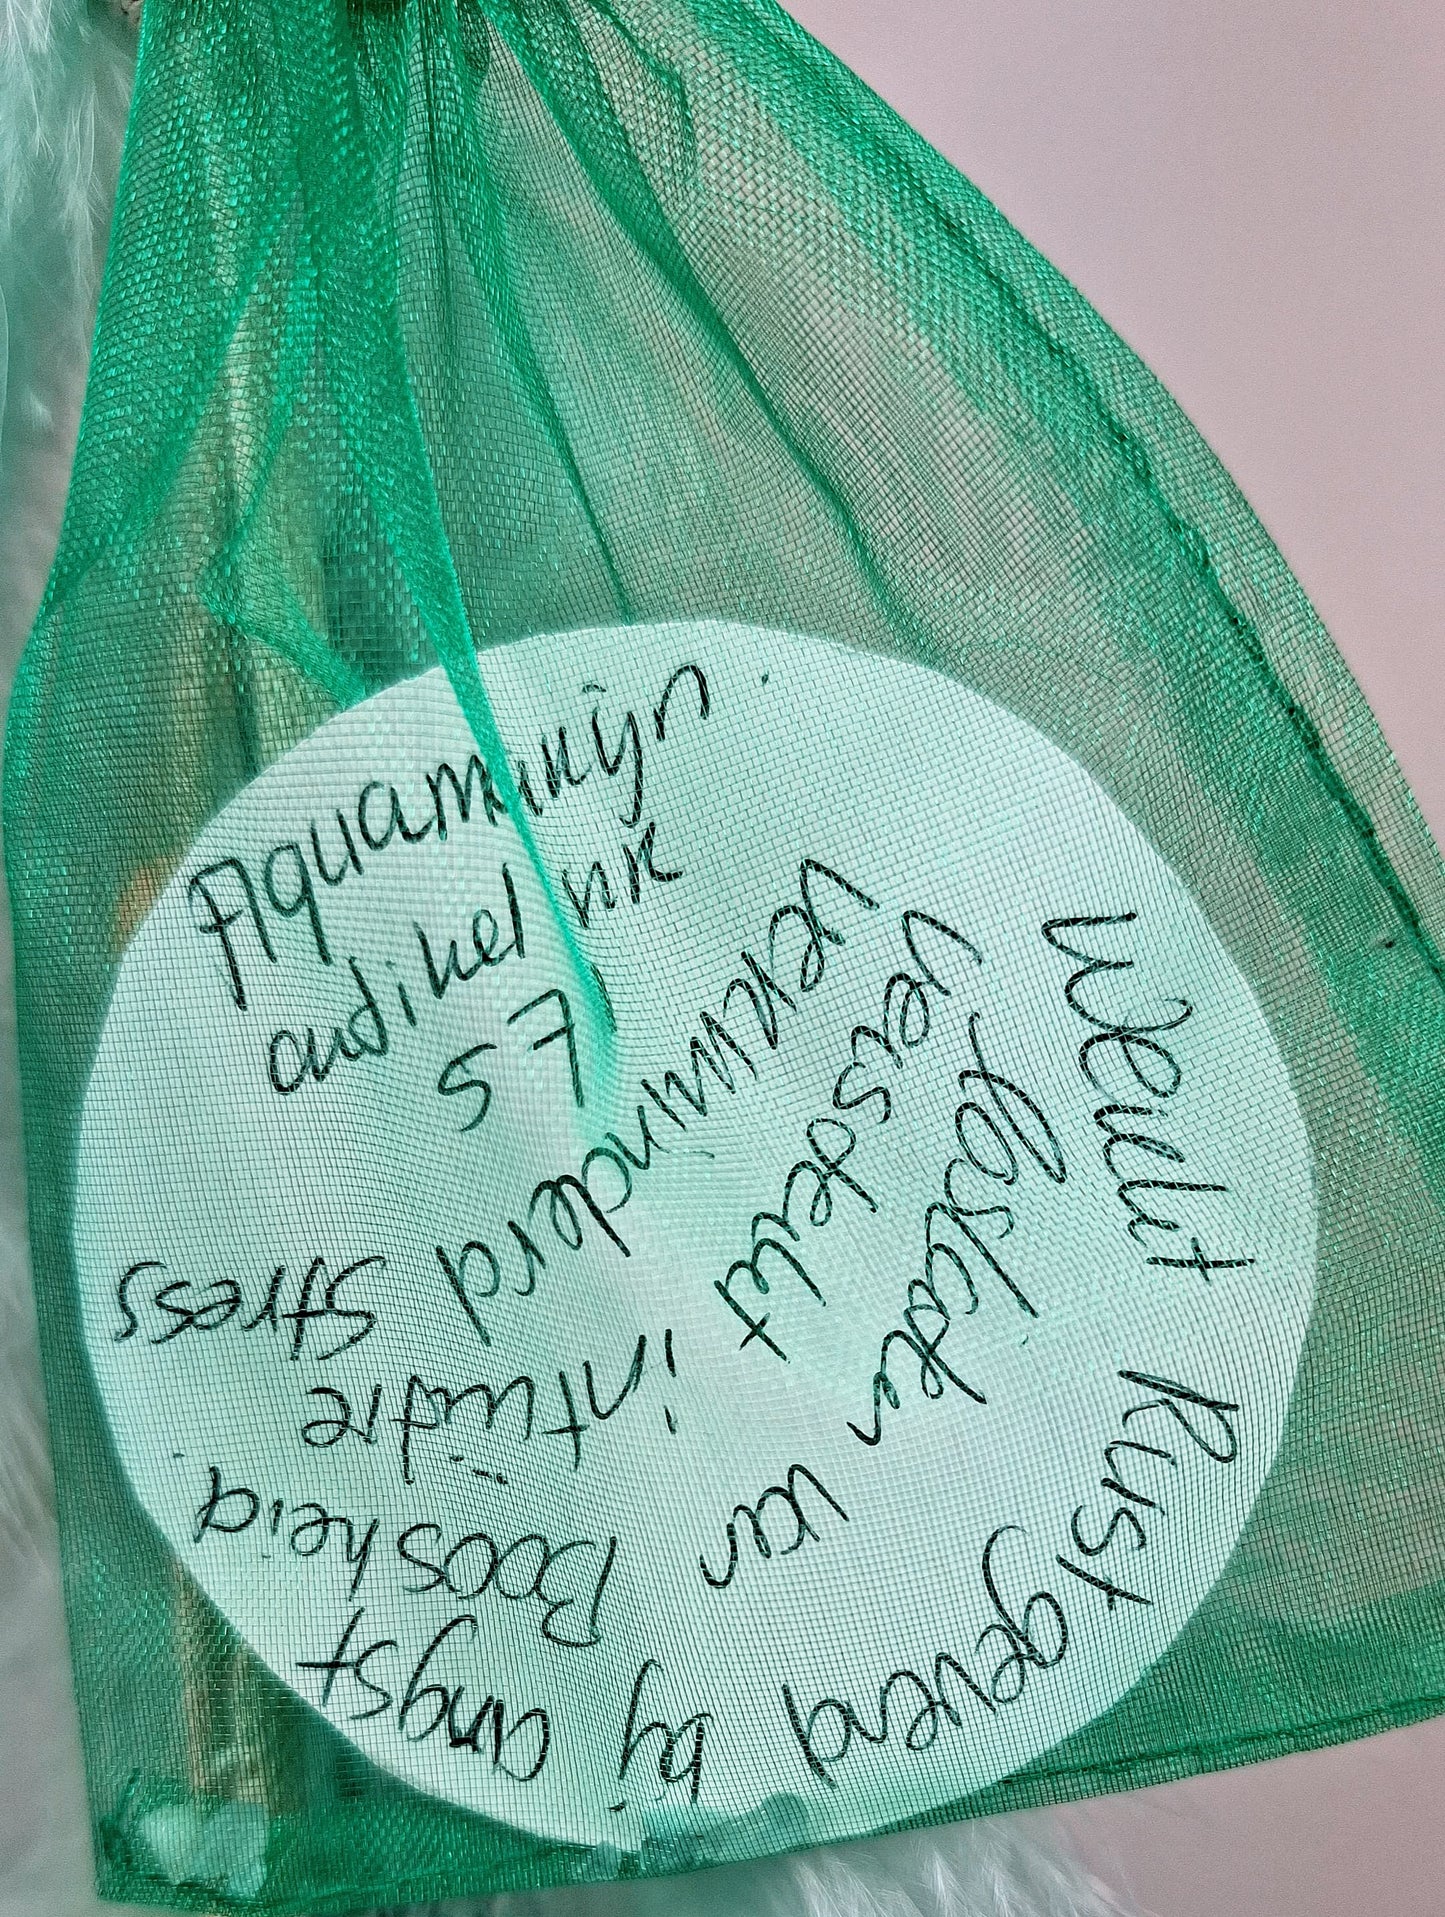 Aquamarijn.
artikel nr
57
Werkt Rustgevend bij angst
Loslaten van Boosheid.
Versterkt intuïtie
Verminderd stress